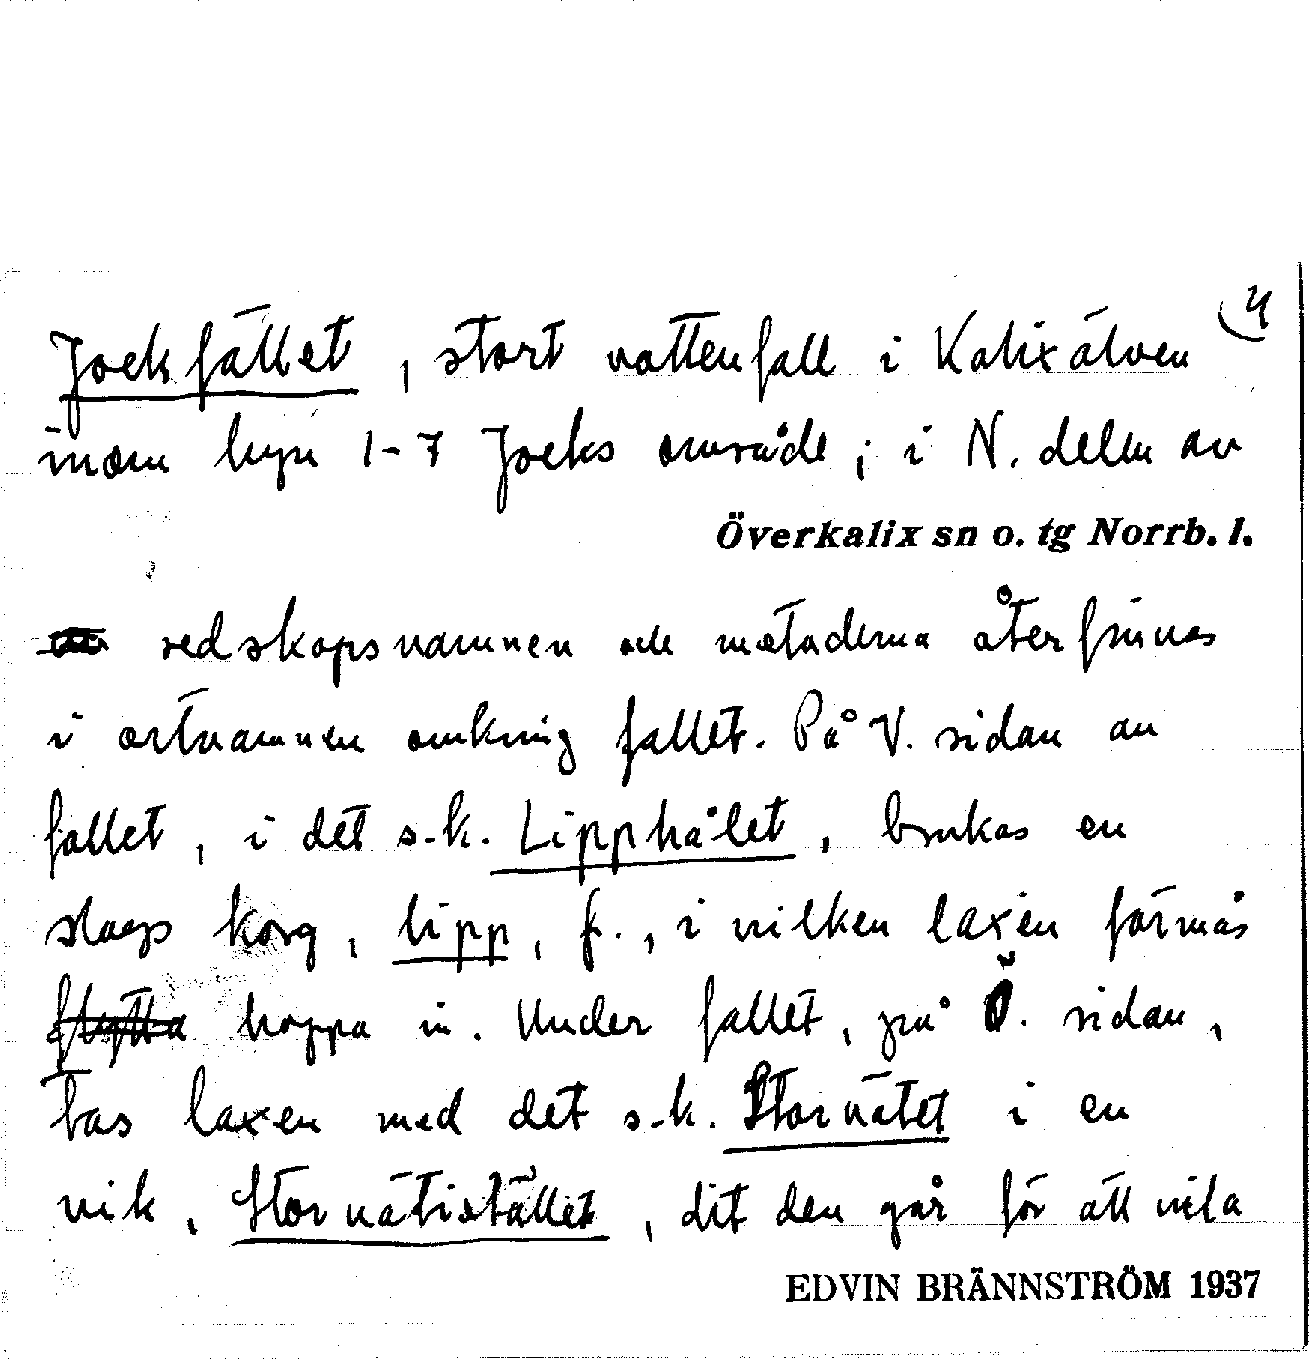 4
Jockfället, stort vattenfall i Kalixälven
inom byn 1-7 Jocks område; i N. delen av
Överkalix sn o. tg Norrb. l.
redskapsnamnen och metoderna återfinnas
i ortnamnen omkring fallet. På V. sidan av
fallet, i det s.k. Lipphålet, brukas en
slags korg, lipp, f., i vilken laxen förmås
flytta hoppa in. Under fallet, på Ö. sidan,
tas laxen med det s.k. Stornätet i en
vik, Stornätistället, dit den går för att vila
EDVIN BRÄNNSTRÖM 1937